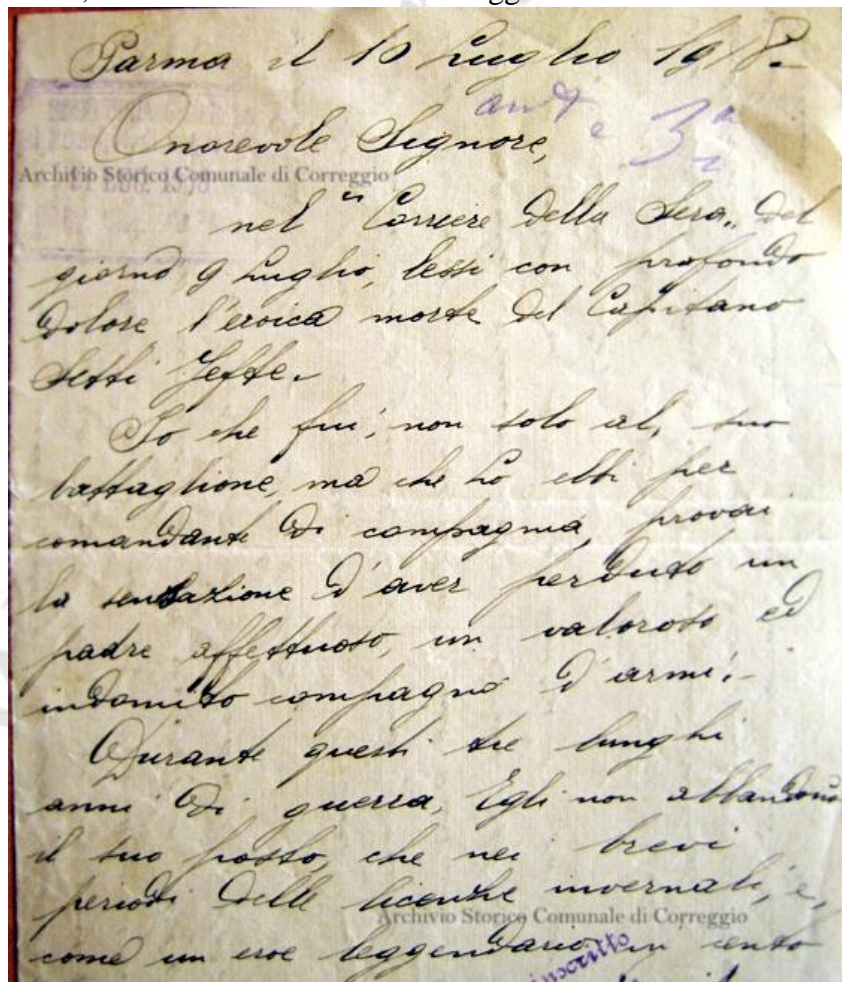 Parma il 10 Luglio 1918.-
Onorevole Signore,
3ª
Archivio Storico Comunale di Correggio
nel "Corriere della Sera„ del
giorno 9 Luglio, lessi con profondo
dolore l'eroica morte del Capitano
Setti Jeffe.
Io che fui, non solo al, suo
battaglione, ma che lo ebbi per
comandante di compagnia, provai
la sensazione d'aver perduto un
padre affettuoso, un valoroso ed
indomito compagno d'armi.-
Durante questi tre lunghi
anni di guerra, Egli non abbandonò
il suo posto, che nei brevi
periodi delle licenze invernali, e,
Archivio Storico Comunale di Correggio
come un eroe leggendario in cento